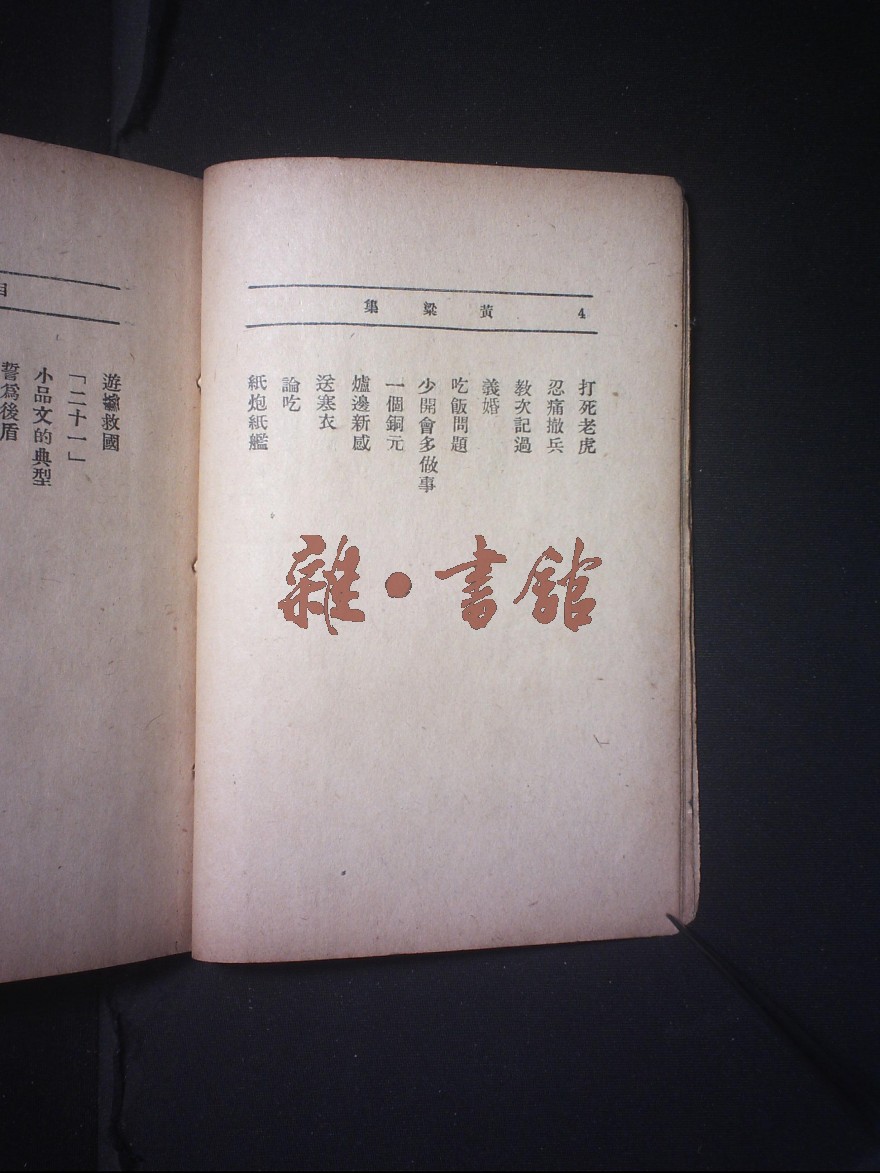 4 黃粱集
打死老虎
忍痛撤兵
教次記過
義婚
吃飯問題
少開會多做事
一個銅元
爐邊新感
送寒衣
論吃
紙炮紙艦
雜·書館
目
遊藝救國
「二十一」
小品文的典型
誓爲後盾